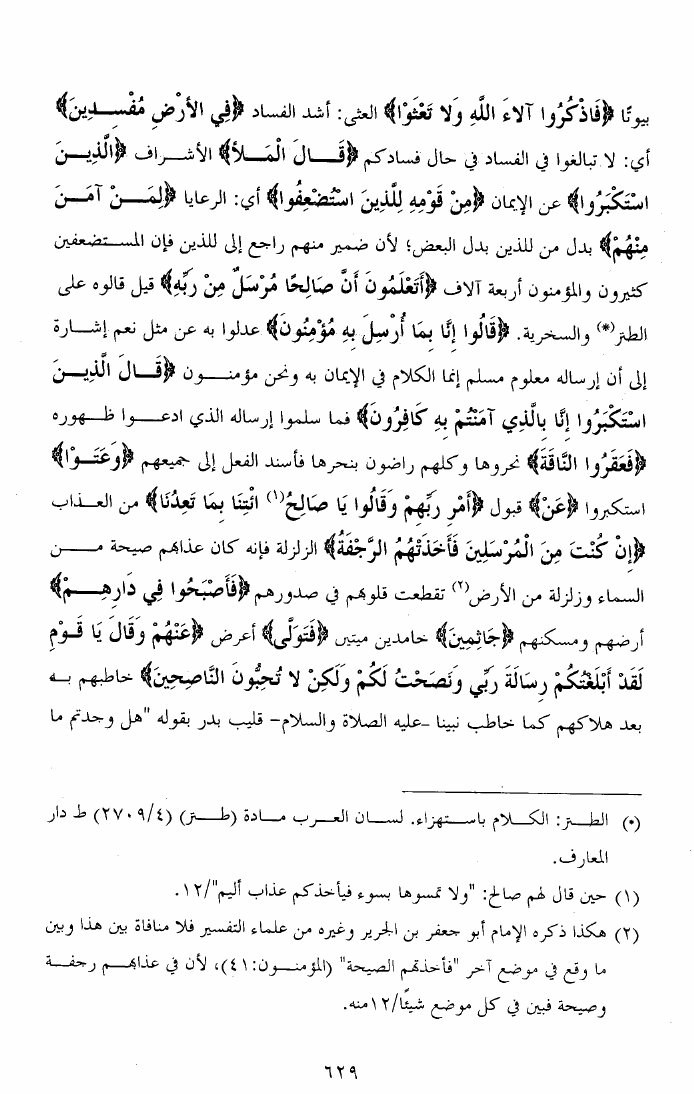 بيوتًا ﴿فَاذْكُرُوا آلاءَ اللَّهِ وَلا تَعْثَوْا﴾ العثى: أشد الفساد ﴿فِي الأَرْضِ مُفْسِدِينَ﴾
أي: لا تبالغوا في الفساد في حال فسادكم ﴿قَالَ الْمَلأُ﴾ الأشراف ﴿الَّذِينَ
اسْتَكْبَرُوا﴾ عن الإيمان ﴿مِنْ قَوْمِهِ لِلَّذِينَ اسْتُضْعِفُوا﴾ أي: الرعايا ﴿لِمَنْ آمَنَ
مِنْهُمْ﴾ بدل من للذين بدل البعض؛ لأن ضمير منهم راجع إلى للذين فإن المستضعفين
كثيرون والمؤمنون أربعة آلاف ﴿أَتَعْلَمُونَ أَنَّ صَالِحًا مُرْسَلٌ مِنْ رَبِّهِ﴾ قيل قالوه على
الطنز(*) والسخرية. ﴿قَالُوا إِنَّا بِمَا أُرْسِلَ بِهِ مُؤْمِنُونَ﴾ عدلوا به عن مثل نعم إشارة
إلى أن إرساله معلوم مسلم إنما الكلام في الإيمان به ونحن مؤمنون ﴿قَالَ الَّذِينَ
اسْتَكْبَرُوا إِنَّا بِالَّذِي آمَنْتُمْ بِهِ كَافِرُونَ﴾ فما سلموا إرساله الذي ادعوا ظهوره
﴿فَعَقَرُوا النَّاقَةَ﴾ نحروها وكلهم راضون بنحرها فأسند الفعل إلى جميعهم ﴿وَعَتَوْا﴾
استكبروا ﴿عَنْ﴾ قبول ﴿أَمْرِ رَبِّهِمْ وَقَالُوا يَا صَالِحُ(١) ائْتِنَا بِمَا تَعِدُنَا﴾ من العذاب
﴿إِنْ كُنْتَ مِنَ الْمُرْسَلِينَ فَأَخَذَتْهُمُ الرَّجْفَةُ﴾ الزلزلة فإنه كان عذابهم صيحة من
السماء وزلزلة من الأرض(٢) تقطعت قلوبهم في صدورهم ﴿فَأَصْبَحُوا فِي دَارِهِمْ﴾
أرضهم ومسكنهم ﴿جَاثِمِينَ﴾ خامدين ميتين ﴿فَتَوَلَّى﴾ أعرض ﴿عَنْهُمْ وَقَالَ يَا قَوْمِ
لَقَدْ أَبْلَغْتُكُمْ رِسَالَةَ رَبِّي وَنَصَحْتُ لَكُمْ وَلَكِنْ لا تُحِبُّونَ النَّاصِحِينَ﴾ خاطبهم به
بعد هلاكهم كما خاطب نبينا -عليه الصلاة والسلام- قليب بدر بقوله "هل وجدتم ما
(*) الطنز: الكلام باستهزاء. لسان العرب مادة (طنز) (٢٧٠٩/٤) ط دار
المعارف.
(١) حين قال لهم صالح: "ولا تمسوها بسوء فيأخذكم عذاب أليم"/١٢.
(٢) هكذا ذكره الإمام أبو جعفر بن الجرير وغيره من علماء التفسير فلا منافاة بين هذا وبين
ما وقع في موضع آخر "فأخذتهم الصيحة" (المؤمنون:٤١)، لأن في عذابهم رجفة
وصيحة فبين في كل موضع شيئًا/١٢منه.
٦٢٩